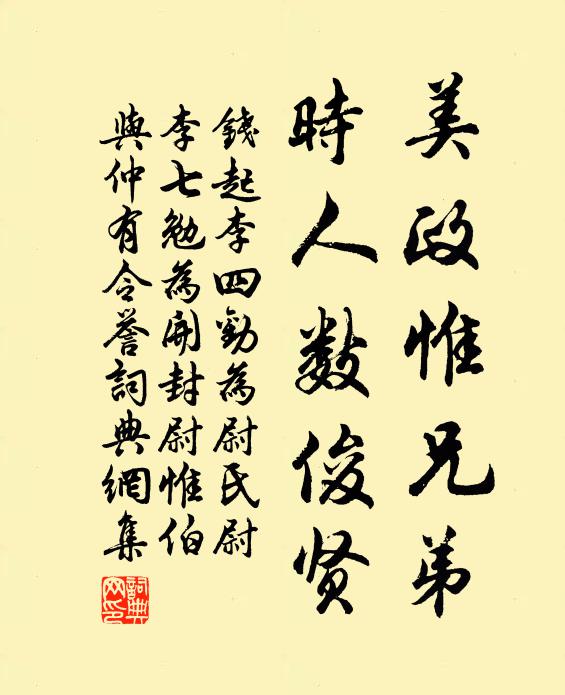 美政惟兄弟
時人数俊贤
錢起李四勸為尉氏尉
李七勉為開封尉惟伯
與仲有令誉詞典網集
詞典网印